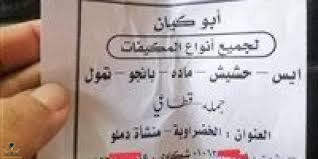 أبو كيان
لجميع أنواع المكيفات
ايس - حشيش - ماده - بانجو - تمول
جمله - قطاعي
العنوان : الخضراوية - منشأة دملو
شكاوي